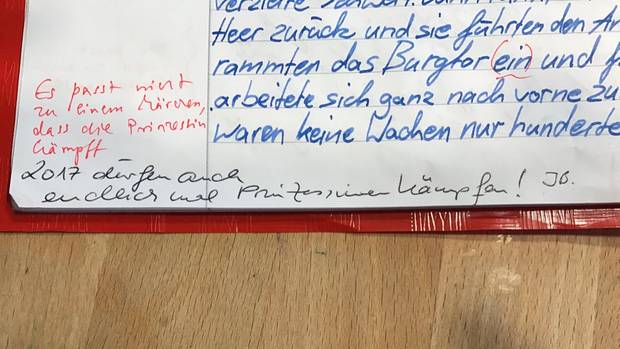 Heer zurück und sie führten den An
rammten das Burgtor ein und f
arbeitete sich ganz nach vorne zu
waren keine Wachen nur hunderte
Es passt nicht
zu einem Märchen,
dass die Prinzessin
kämpft
2017 dürfen auch
endlich mal Prinzessinnen kämpfen! JB.